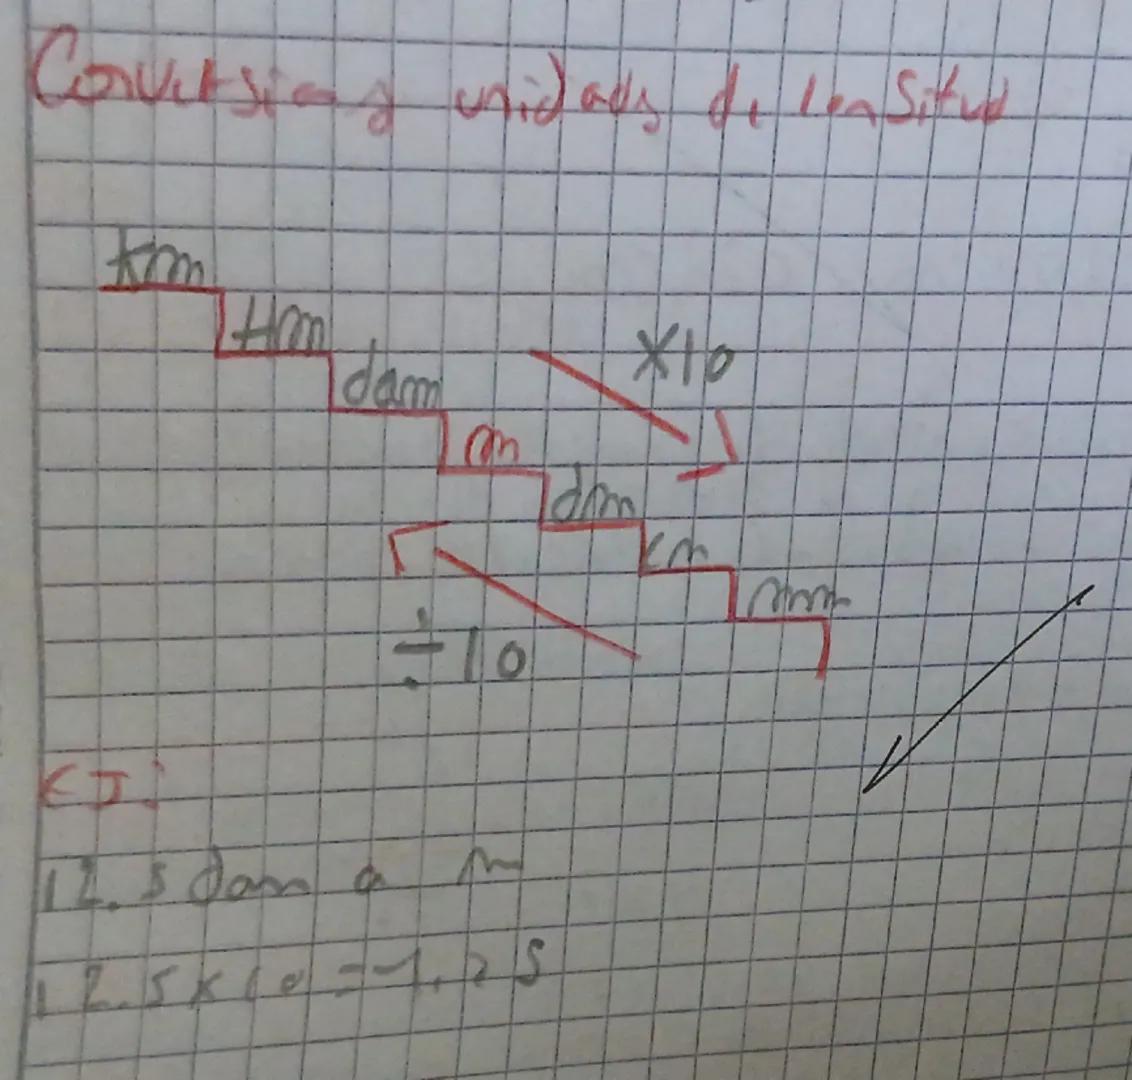 Conversion d unidads de lonSitud
km
Hm
dam
X10
m
dm
cm
mm
÷10
EJ:
12.5 dam a m
12.5x10=1.25